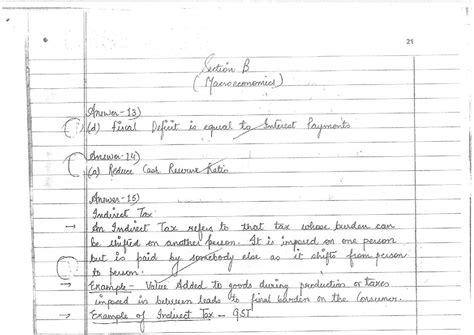 21
Section B
(Macroeconomics)
Answer-13)
(d) Fiscal Deficit is equal to Interest Payments
Answer-14)
(a) Reduce Cash Reserve Ratio
Answer-15)
Indirect Tax
→ An Indirect Tax refers to that tax whose burden can
be shifted on another person. It is imposed on one person
but is paid by somebody else as it shifts from person
to person.
→ Example - Value Added to goods during production or taxes
imposed in between leads to final burden on the Consumer.
→ Example of Indirect Tax - GST